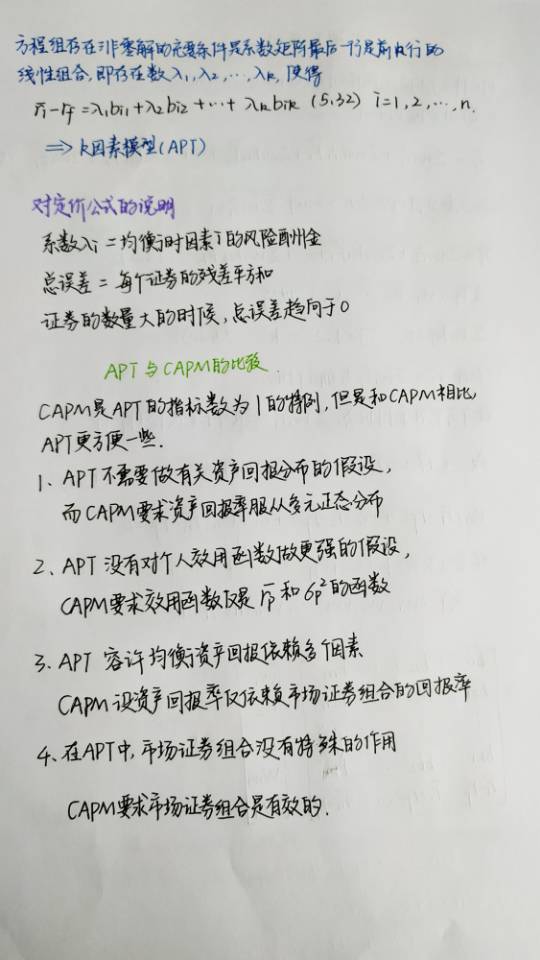 方程组存在非零解的充要条件是系数矩阵最后一行是前k行的
线性组合,即存在数λ₁,λ₂,…,λk,使得
r̄i-rf=λ₁bi1+λ₂bi2+…+λkbik (5.32) i=1,2,…,n.
⇒k因素模型(APT)
对定价公式的说明
系数λi=均衡时因素i的风险酬金
总误差=每个证券的残差平方和
证券的数量大的时候,总误差趋向于0
APT与CAPM的比较.
CAPM是APT的指标数为1的特例,但是和CAPM相比,
APT更方便一些.
1、APT不需要做有关资产回报分布的假设,
而CAPM要求资产回报率服从多元正态分布
2、APT没有对个人效用函数做更强的假设,
CAPM要求效用函数仅是r̄p和σp²的函数
3、APT 容许均衡资产回报依赖多个因素
CAPM设资产回报率仅依赖市场证券组合的回报率
4、在APT中,市场证券组合没有特殊的作用
CAPM要求市场证券组合是有效的.